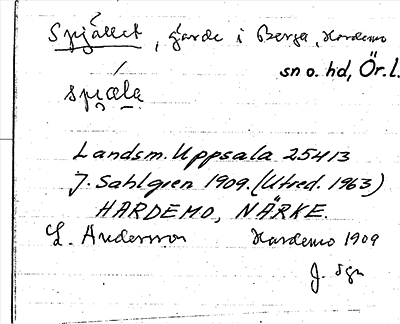 Spjället, gärde i Berga, Hardemo
sn o. hd, Ör. l.
spjæla
Landsm. Uppsala 254 13
J. Sahlgren 1909. (Utred. 1963)
HARDEMO, NÄRKE.
L. Andersson Hardemo 1909
J. Sgn